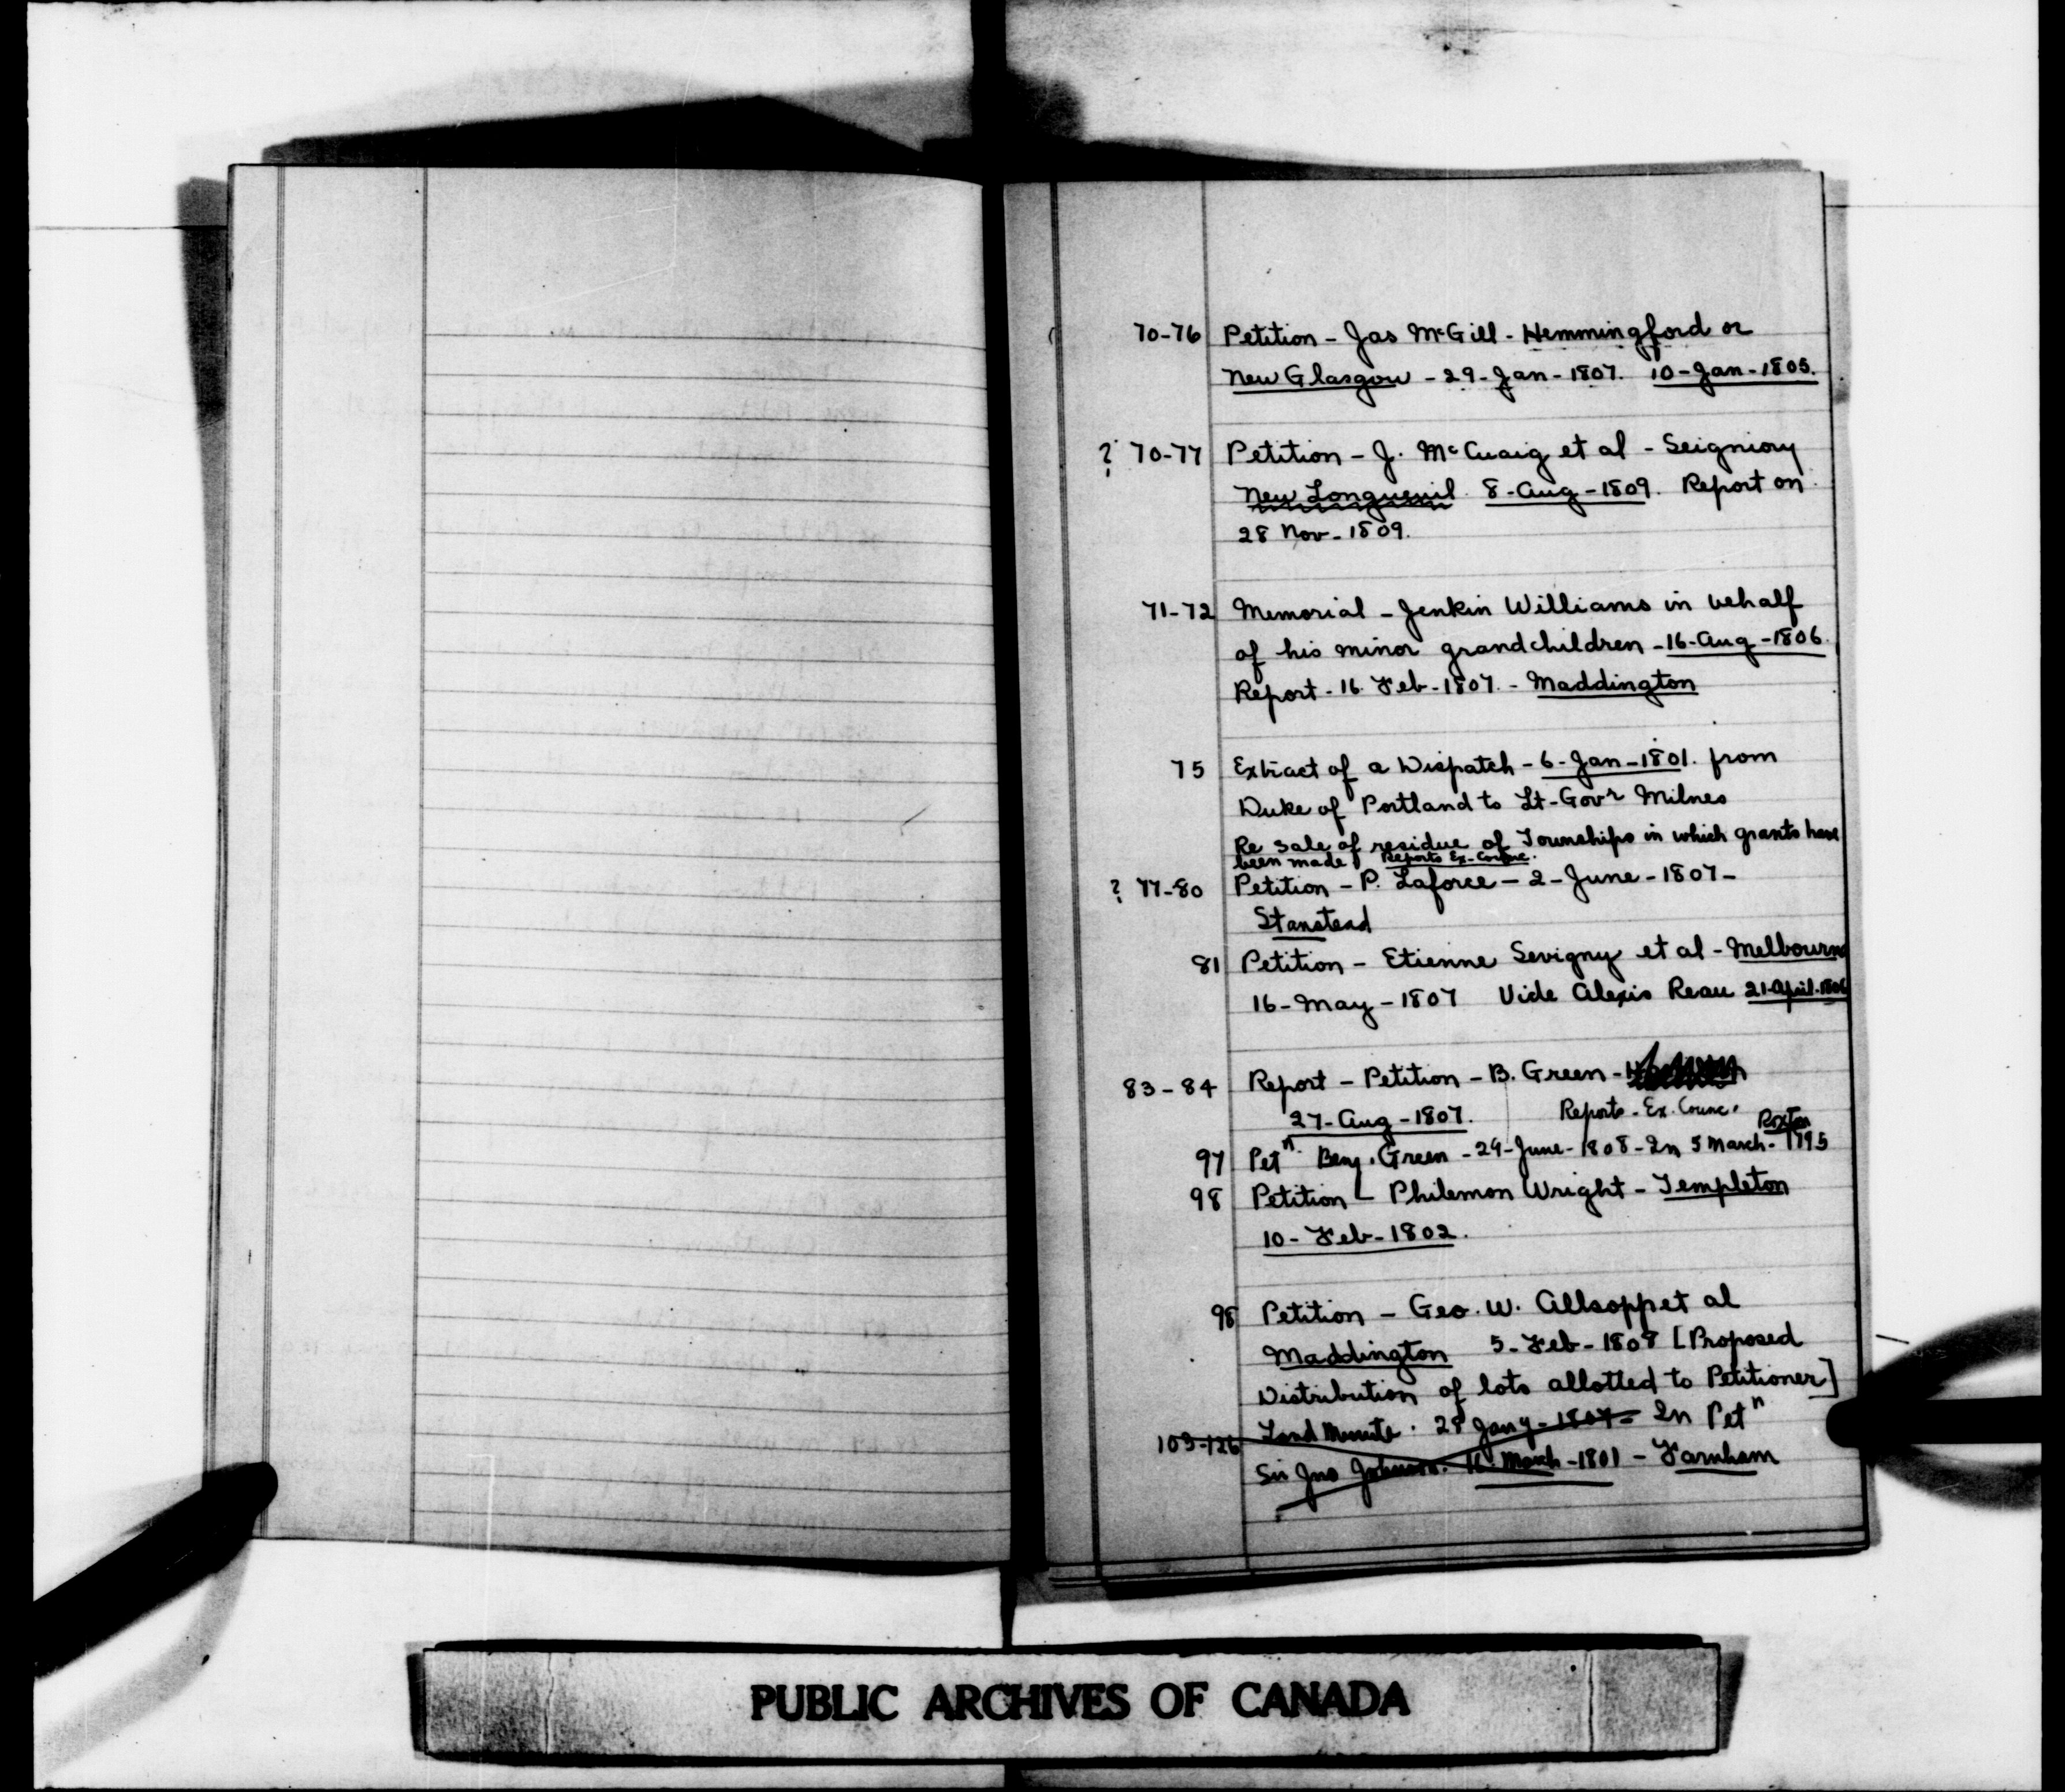 70-76 Petition - Jas McGill - Hemmingford or
New Glasgow - 29-Jan-1807. 10-Jan-1805.
? 70-77 Petition - J. McCuaig et al - Seigniory
New Longueuil. 8-Aug-1809. Report on
28 Nov-1809.
71-72 Memorial - Jenkin Williams in behalf
of his minor grandchildren - 16-Aug-1806.
Report - 16 Feb-1807. - Maddington
75 Extract of a Dispatch - 6-Jan-1801. from
Duke of Portland to Lt-Govr Milnes
Re sale of residue of Townships in which grants have
been made Reports Ex-Counc.
? 77-80 Petition - P. Laforce - 2-June-1807-
Stanstead
81 Petition - Etienne Sevigny et al - Melbourne
16-May-1807 Vide Alexis Reau 21-April-1806
83-84 Report - Petition - B. Green -
27-Aug-1807. Reports - Ex. Counc.
Roxton
97 Petn. Benj. Green - 24-June-1808 - In 5 March-1795
98 Petition - Philemon Wright - Templeton
10-Feb-1802.
98 Petition - Geo. W. Allsopp et al
Maddington 5-Feb-1808 [Proposed
Distribution of lots allotted to Petitioner]
103-126 Land Minute. 28 Jany-1807- In Petn
Sir Jno Johnson. 16 March-1801 - Farnham
PUBLIC ARCHIVES OF CANADA